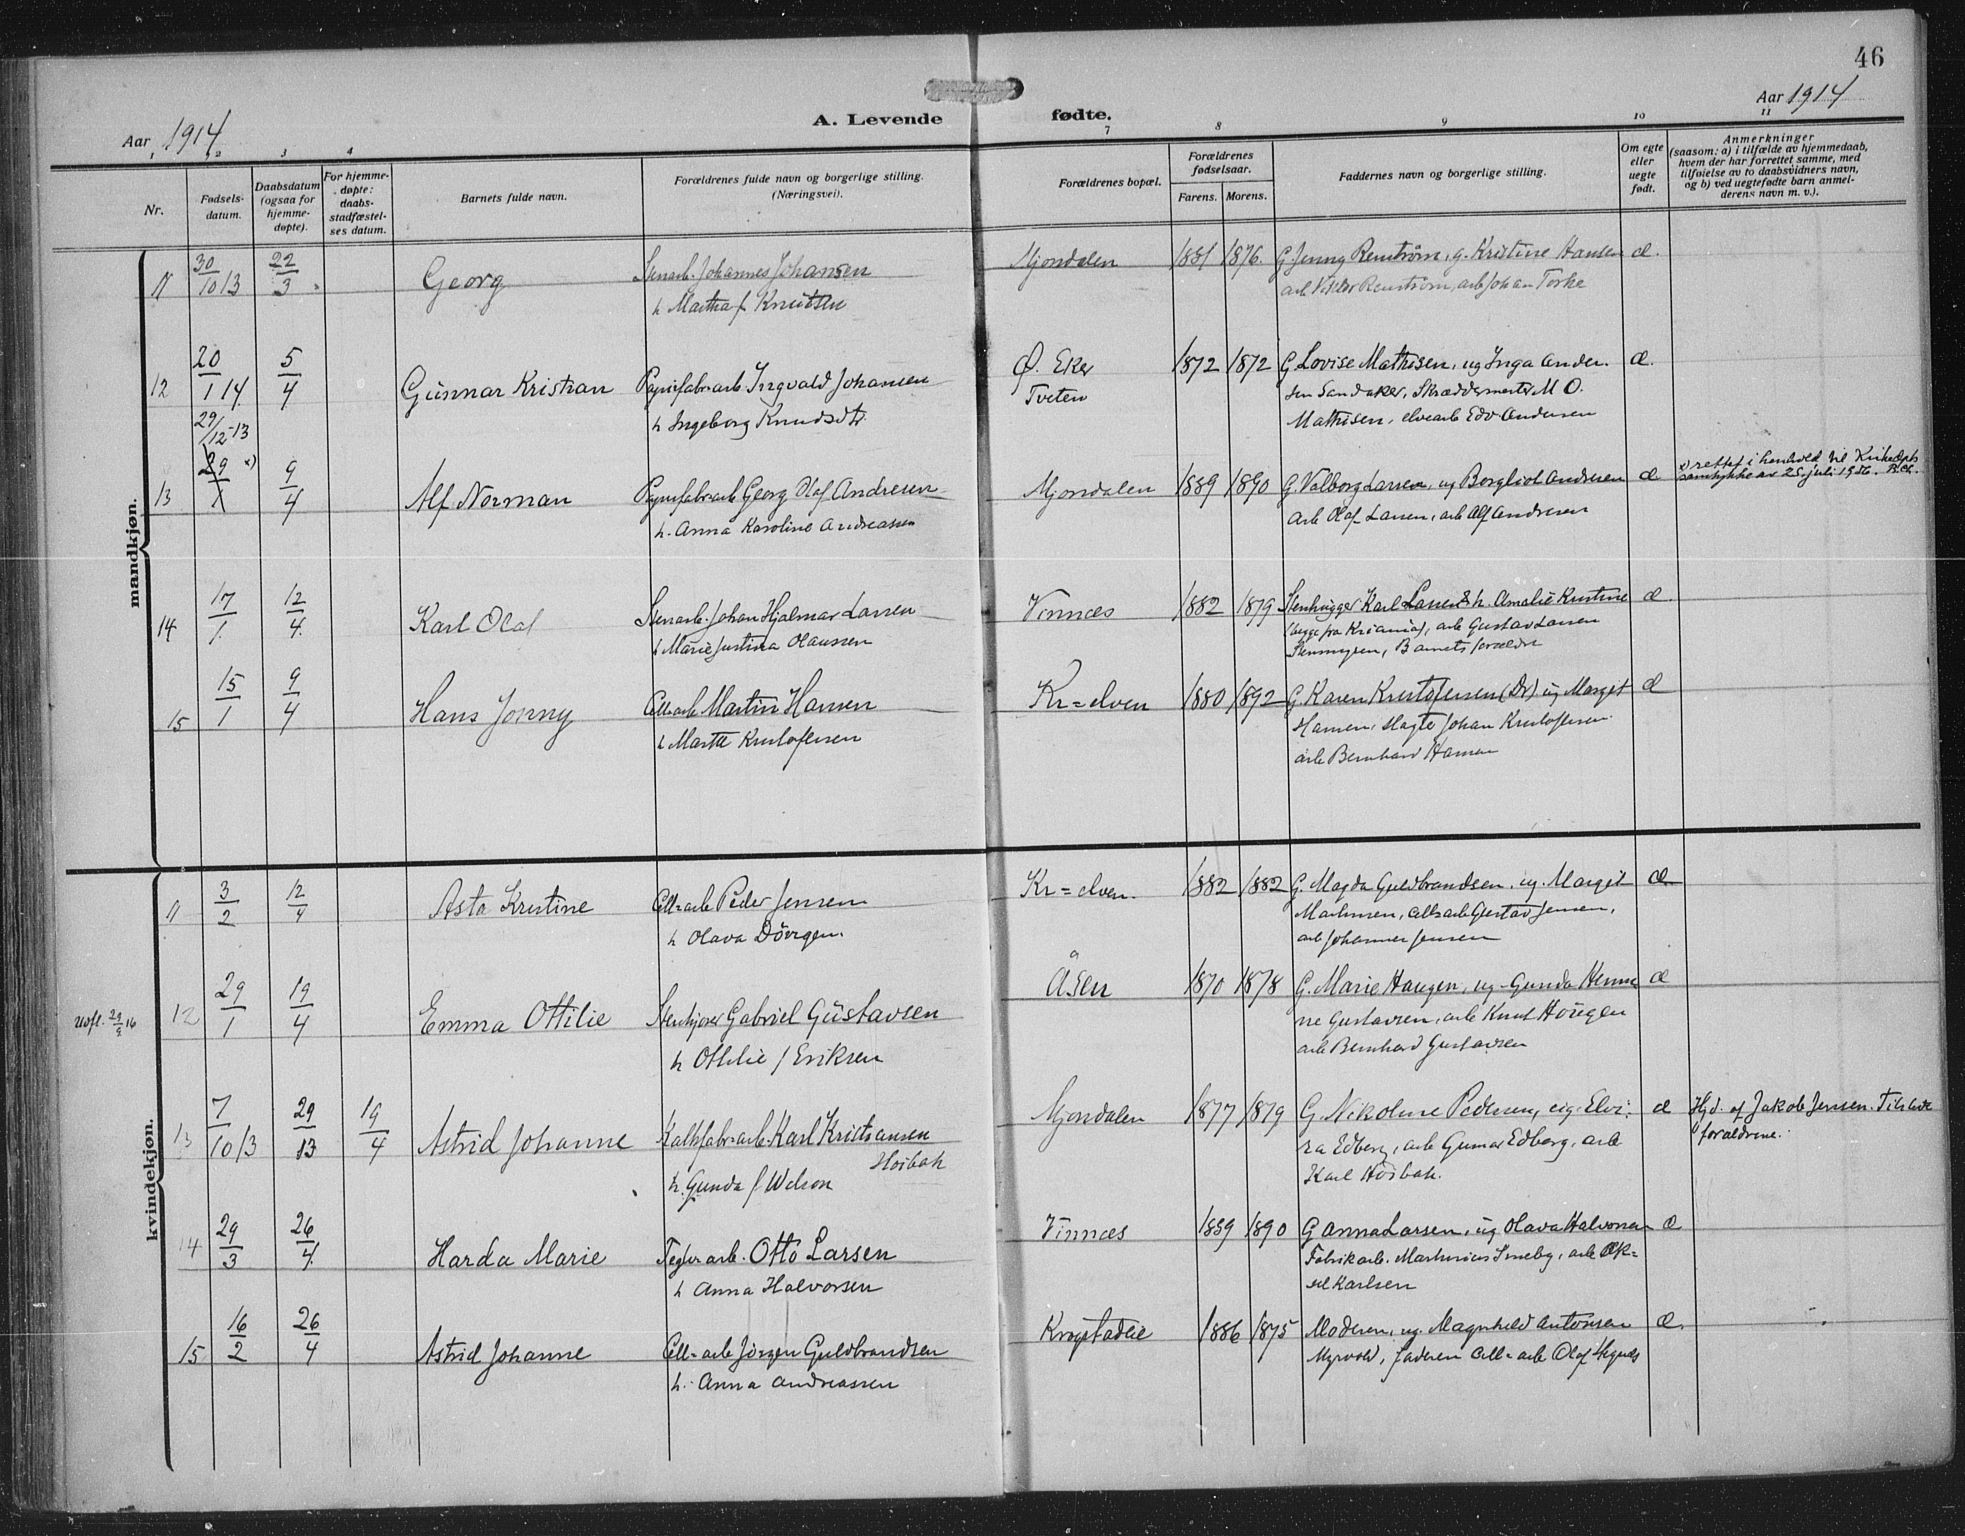 46
Aar 1914
A. Levende fødte.
Aar 1914
1 2 3 4 7 8 9 10 11
Nr.
Fødsels-
datum.
Daabsdatum
(ogsaa for
hjemme-
døpte).
For hjemme-
døpte:
daabs-
stadfæstel-
ses datum.
Barnets fulde navn.
Forældrenes fulde navn og borgerlige stilling.
(Næringsvei).
Forældrenes bopæl.
Forældrenes
fødselsaar.
Farens. Morens.
Faddernes navn og borgerlige stilling.
Om egte
eller
uegte
født.
Anmerkninger
(saasom: a) i tilfælde av hjemmedaab,
hvem der har forrettet samme, med
tilføielse av to daabsvidners navn,
og b) ved uegtefødte barn anmel-
derens navn m. v.).
mandkjøn.
11 30/10 13 22/3 Georg Stenarb. Johannes Johansen Mjondalen 1881 1876. G. Jenny Renström, g. Kristine Hansen æ.
h Martha f. Knutsen arb Viktor Renström, arb Johan Torke
12 20/1 14. 5/4 Gunnar Kristian Papirfabr-arb. Ingvald Johansen Ø. Eker 1872 1872 G Lovise Mathisen, ug Inga Ander- æ.
h Ingeborg Knudsdtr Tveten sen Sandaker, Skræddermester M O.
Mathisen, elvearb Edv Andersen
29/12-13
13 29/1 x) 9/4 Alf Norman Papirfabr-arb Georg Olaf Andresen Mjondalen 1889 1890 G. Valborg Larsen, ug Borgliot Andresen æ x) rettet i henhold til Kirkedpts
h. Anna Karoline Andreassen arb Olaf Larsen, arb Alf Andresen samtykke av 25 juli 1956.
14 17/1. 12/4. Karl Olaf Stenarb. Johan Hjalmar Larsen Vinnæs 1882 1879 Stenhugger Karl Larsen & h. Amalie Kristine æ.
h Marie Justina Olaussen (begge fra Kr.iania), arb Gustav Larsen
Stenmyren, Barnets forældre
15 15/1 9/4 Hans Jonny Cell-arb Martin Hansen Kr=elven 1880 1892 G. Karen Kristofersen (Dr) ug Margit æ
h Marte Kristofersen Hansen, slagte Johan Kristofersen
arb Bernhard Hansen
kvindekjøn.
11 3/2 12/4 Asta Kristine Cell=arb Peder Jensen Kr=elven. 1882 1882 G. Magda Guldbrandsen, ug. Margit æ
h Olava Dövigen. Martinsen, cell=arb Gustav Jensen,
arb Johannes Jensen
12 29/1 19/4 Emma Ottilie Stenkjører Gabriel Gustavsen Åsen 1870 1878 G. Marie Haugen, ug. Gunda Henni æ
h Ottilie f Eriksen ne Gustavsen, arb Knut Hougen
arb Bernhard Gustavsen
13 7/10 13 29/13 19/4 Astrid Johanne Kalkfabr-arb. Karl Kristiansen Mjondalen 1877 1879 G. Nikoline Pedersen, ug. Elvi- æ Hjd. af Jakob Jensen. Tilstede
Hoibak
h. Gunda f Wilson ra Edberg, arb Gunnar Edberg, arb forældrene.
Karl Hoibak.
14 29/3 26/4. Harda Marie Teglv-arb. Otto Larsen Vinnæs 1889 1890 G Anna Larsen, ug Olava Halvorsen æ
h Anna Halvorsen Fabrikarb. Martinius Smeby, arb Ak=
sel Karlsen
15 16/2 26/4 Astrid Johanne Cell=arb Jörgen Guldbrandsen Krogstadlie 1886 1875 Moderen, ug. Magnhild Antonsen æ.
h. Anna Andreassen Myrvold, faderen Cell=arb Olaf